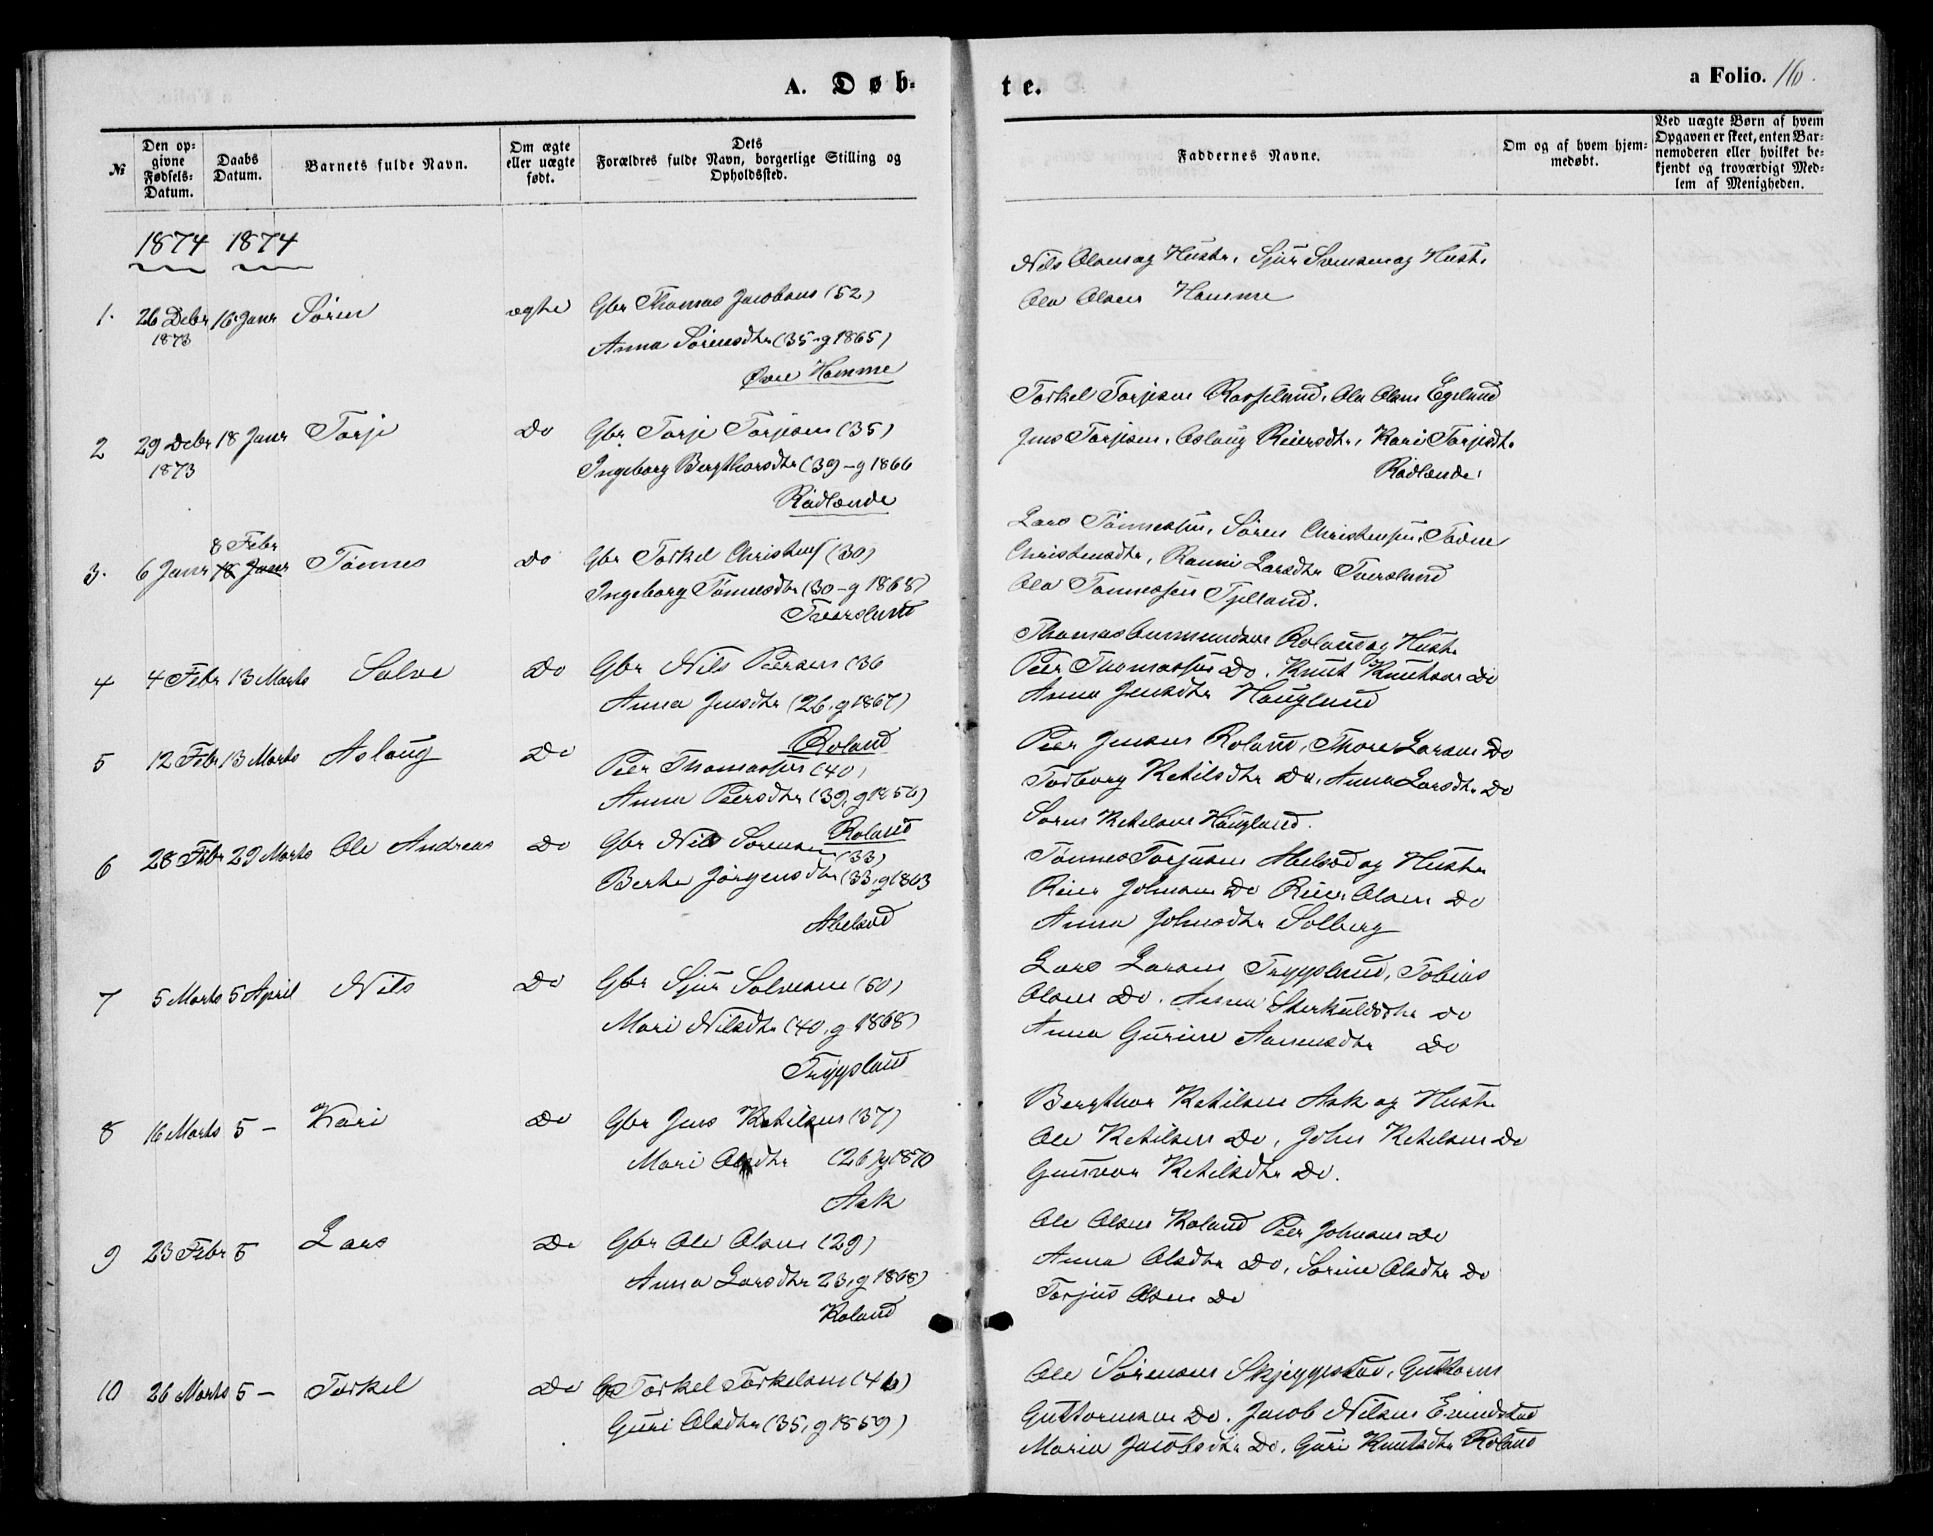 A. Døb-
te.
a Folio. 16.
№
Den op-
givne
Fødsels-
Datum.
Daabs
Datum.
Barnets fulde Navn.
Om ægte
eller uægte
født.
Dets
Forældres fulde Navn, borgerlige Stilling og
Opholdssted.
Faddernes Navne.
Om og af hvem hjem-
medøbt.
Ved uægte Børn af hvem
Opgaven er skeet, enten Bar-
nemoderen eller hvilket be-
kjendt og troværdigt Med-
lem af Menigheden.
1874 1874
1. 26 Debr 16 Janr Sören ægte Gbr Thomas Jacobsen (52)
1873
Anna Sörensdtr (35 - g 1865)
Øvre Homme
Nils Olsen og Hustr. Sjur Svensen og Hustr.
Ola Olsen Homme
2 29 Debr 18 Janr Torje Do Gbr Torje Torjesen (35)
1873 Ingeborg Bergthorsdtr (39 - g 1866
Rödlende
Torkel Torjesen Rosseland, Ola Olsen Egeland
Jens Torjesen, Aslaug Reiersdtr, Kari Torjesdtr
Rödlende.
8 Febr
3. 6 Janr 18 Janr Tönnes Do Gbr Torkel Christens (30)
Ingeborg Tönnesdtr (30 - g 1868)
Tverslund
Lars Tönnessen, Sören Christensen, Todne
Christensdtr, Ranni Larsdtr Tverslund
Ola Tönnessen Tjelland.
4 4 Febr 13 Marts Salve Do Gbr Nils Peersen (36
Anna Jensdtr (26, g 1867)
Roland
Thomas Gunmundsen Roland og Hustr
Peer Thomassen Do. Knut Knutsen Do
Anna Jensdtr Hauglund
5 12 Febr 13 Marts Aslaug Do Peer Thomassen (40)
Anna Peersdtr (39, g 1856)
Roland
Peer Jensen Roland, Thore Larsen Do
Torborg Ketilsdtr Do, Anna Larsdtr Do
Sören Ketelsen Hauglund.
6 28 Febr 29 Marts Ole Andreas Do Gbr Nils Sorensen
(33)
Berte Jörgensdtr (33, g 1863
Abelsöd
Tönnes Torjusen Abelsöd og Hustr
Reier Johnsen Do Reier Olsen Do
Anna Johnsdtr Solberg
7 5 Marts 5 April Nils Do Gbr Sjur Solvesen (50)
Mari Nilsdtr (40, g 1868)
Trygsland
Lars Larsen Trygsland, Tobias
Olsen Do. Anna Sterkuldsdtr Do
Anna Gurine Aanensdtr Do
8 16 Marts 5 - Kari Do Gbr Jens Ketilsen (37)
Mari Olsdtr (26) g 1870
Ask
Bergthor Ketilsen Ask og Hustr.
Ole Ketilsen Do, John Ketelsen Do
Gunvor Ketilsdtr Do.
9 23 Febr 5 Lars Do Gbr Ole Olsen (29)
Anna Larsdtr 23, g 1868)
Roland
Ole Olsen Roland Peer Johnsen Do
Anna Olsdtr Do, Sörine Olsdtr Do
Torjus Olsen Do
10 26 Marts 5 - Torkel Do Torkel Torkelsen (46)
Guri Olsdtr (35, g 1859)
Ole Sörensen Skjeggestad, Guttorm
Guttormsen Do. Jacob Nilsen Eriindstad
Maria Jacobsdtr Do. Guri Knutsdtr Roland